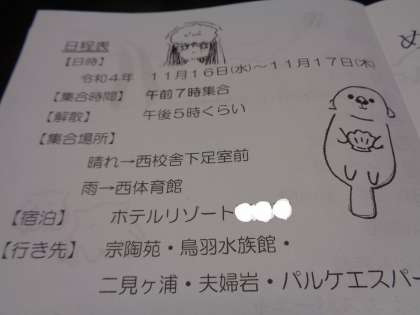 日程表
【日時】
令和４年　１１月１６日(水)～１１月１７日(木)
【集合時間】　午前７時集合
【解散】　午後５時くらい
【集合場所】
晴れ→西校舎下足室前
雨→西体育館
【宿泊】　ホテルリゾート
【行き先】　宗陶苑・鳥羽水族館・
二見ヶ浦・夫婦岩・パルケエスパー
め